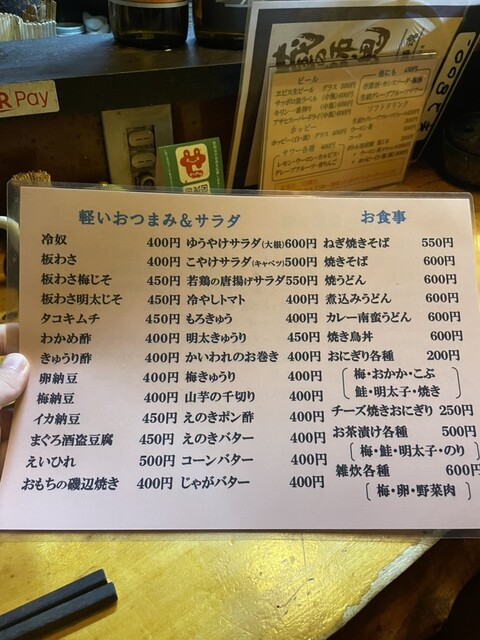 R Pay
ビール
ホッピー
サワー各種 400円
ソフトドリンク
軽いおつまみ＆サラダ
冷奴 400円
板わさ 400円
板わさ梅じそ 450円
板わさ明太じそ 450円
タコキムチ 450円
わかめ酢 400円
きゅうり酢 400円
卵納豆 400円
梅納豆 400円
イカ納豆 450円
まぐろ酒盗豆腐 450円
えいひれ 500円
おもちの磯辺焼き 400円
ゆうやけサラダ(大根)600円
こやけサラダ(キャベツ)500円
若鶏の唐揚げサラダ550円
冷やしトマト 400円
もろきゅう 400円
明太きゅうり 450円
かいわれのお巻き 400円
梅きゅうり 400円
山芋の千切り 400円
えのきポン酢 400円
えのきバター 400円
コーンバター 400円
じゃがバター 400円
お食事
ねぎ焼きそば 550円
焼きそば 600円
焼うどん 600円
煮込みうどん 600円
カレー南蛮うどん 600円
焼き鳥丼 600円
おにぎり各種 200円
梅・おかか・こぶ
鮭・明太子・焼き
チーズ焼きおにぎり 250円
お茶漬け各種 500円
[梅・鮭・明太子・のり]
雑炊各種 600円
[梅・卵・野菜肉]